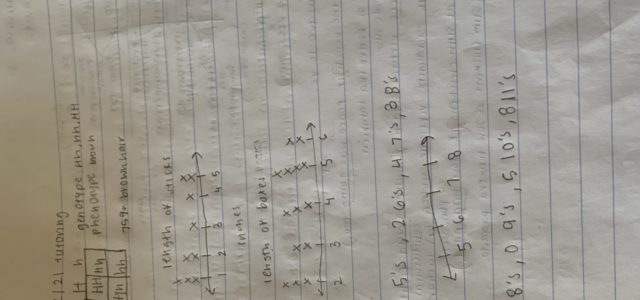 121 tutoring
H h genotype Hh, hh, HH
HH Hh phenotype brown
Hh hh 75% brown hair
length of sticks
1 2 3 4 5
inches
length of boxes
2 3 4 5 6
5's, 2 6's, 4 7's, 3 8's
5 6 7 8
8's, 0 9's, 5 10's, 8 11's